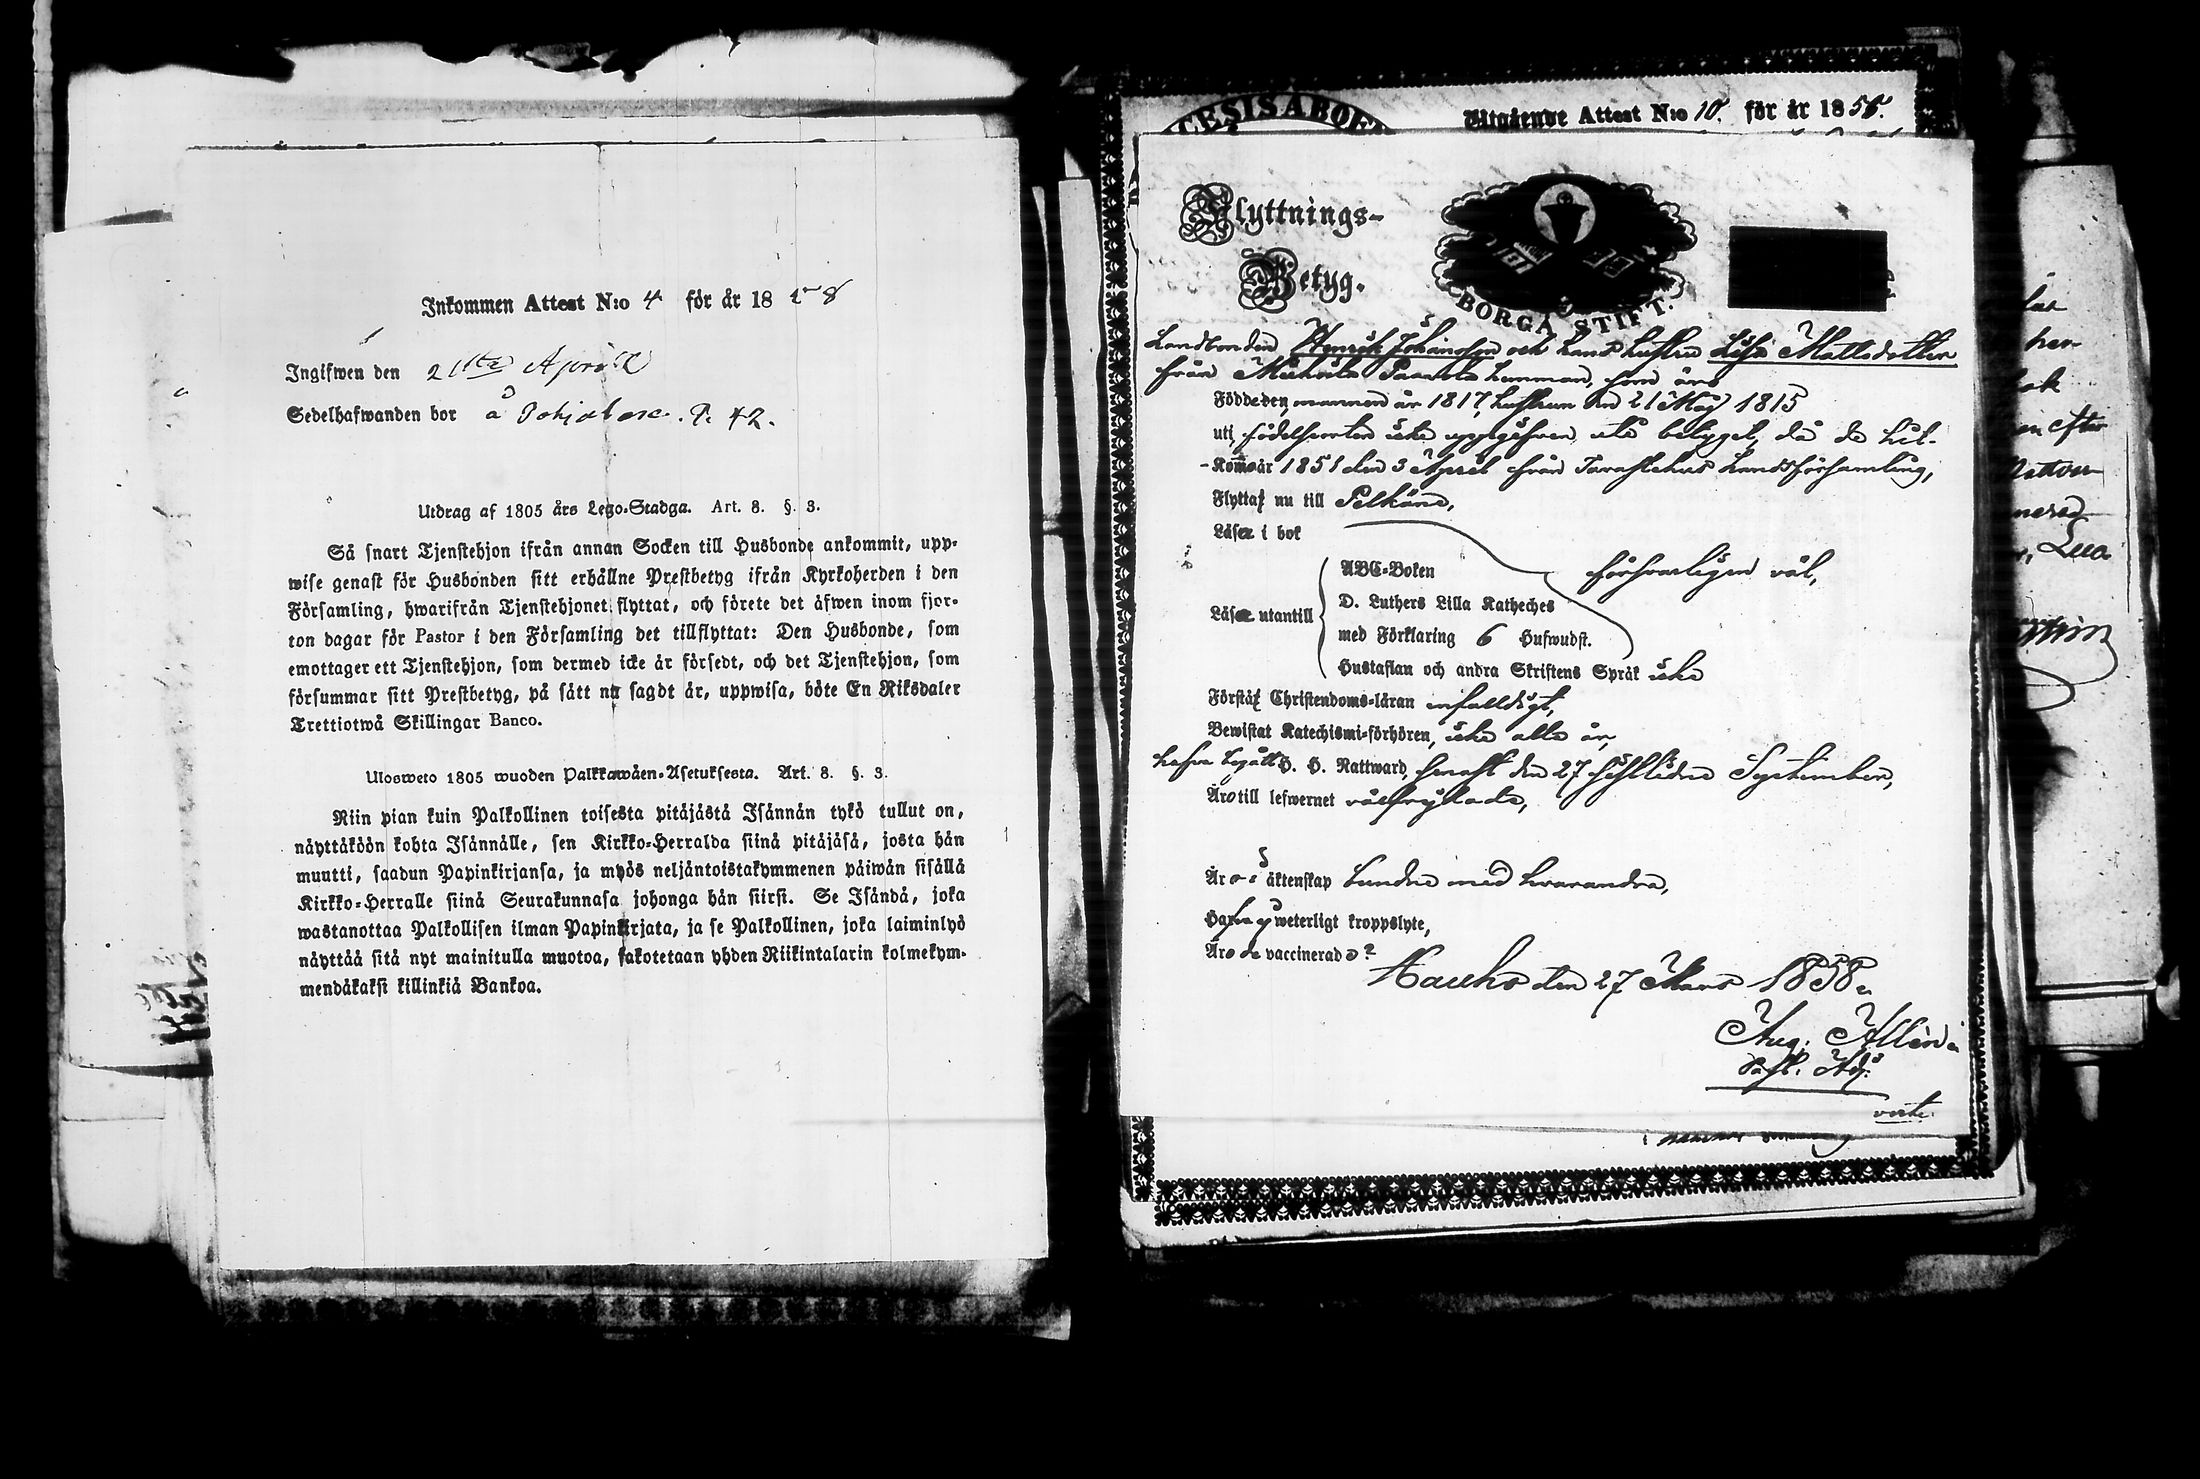 Inkommen Attest N:o 4 för år 1858
Ingifwen den 21sta April
Sedelhafwanden bor å Pohjalase. P. 42.
Utdrag af 1805 års Lego-Stadga. Art. 8. §. 3.
Så snart Tjenstehjon ifrån annan Socken till Husbonde ankommit, upp-
wise genast för Husbonden sitt erhållne Prestbetyg ifrån Kyrkoherden i den
Församling, hwarifrån Tjenstehjonet flyttat, och förete det äfwen inom fjor-
ton dagar för Pastor i den Församling det tillflyttat: Den Husbonde, som
emottager ett Tjenstehjon, som dermed icke är försedt, och det Tjenstehjon, som
försummar sitt Prestbetyg, på sätt nu sagdt är, uppwisa, böte En Riksdaler
Trettiotwå Skillingar Banco.
Ulosweto 1805 wuoden Palkkawäen-Asetuksesta. Art. 8. §. 3.
Niin pian kuin Palkollinen toisesta pitäjästä Isännän tykö tullut on,
näyttäköön kohta Isännälle, sen Kirkko-Herralda siinä pitäjäsä, josta hän
muutti, saadun Papinkirjansa, ja myös neljäntoistakymmenen päiwän sisällä
Kirkko-Herralle siinä Seurakunnasa johonga hän siirsi. Se Isändä, joka
wastanottaa Palkollisen ilman Papinkirjata, ja se Palkollinen, joka laiminlyö
näyttää sitä nyt mainitulla muotoa, sakotetaan yhden Riikintalarin kolmekym-
mendäkaksi killinkiä Bankoa.
CESIS ABOE
Utgående Attest N:o 10. för år 1856.
Flyttnings-
Betyg.
BORGÅ STIFT.
Landbonden Henrik Johansson och hans hustru Lisa Mattsdotter
från Paavola hemman, som äro
Födde den, mannen år 1817, hustrun den 21 Maj 1815
uti, födelseorten icke uppgifven uti betyget, då de hit-
Kommo år 1851 den 3 April från Tavastehus Landsförsamling,
Flytta nu till Pelkäne,
Läsa i bok
ABC-Boken försvarligen väl,
D. Luthers Lilla Katheches
Läsa utantill
med Förklaring 6 Hufwudst.
Hustaflan och andra Skriftens Språk icke
Förstå Christendoms-läran enfaldigt,
Bewistat Katechismi-förhören, icke alla år,
hafva begått H. H. Nattward, senast den 27 sistlidne September,
Äro till lefwernet välfrejdade,
Äro i äktenskap bundne med hvarandra,
Hafva ej weterligt kroppslyte,
Äro de vaccinerade?
Hauho den 27 Mars 1858.
Aug. Allén
Past. Adj.
verte